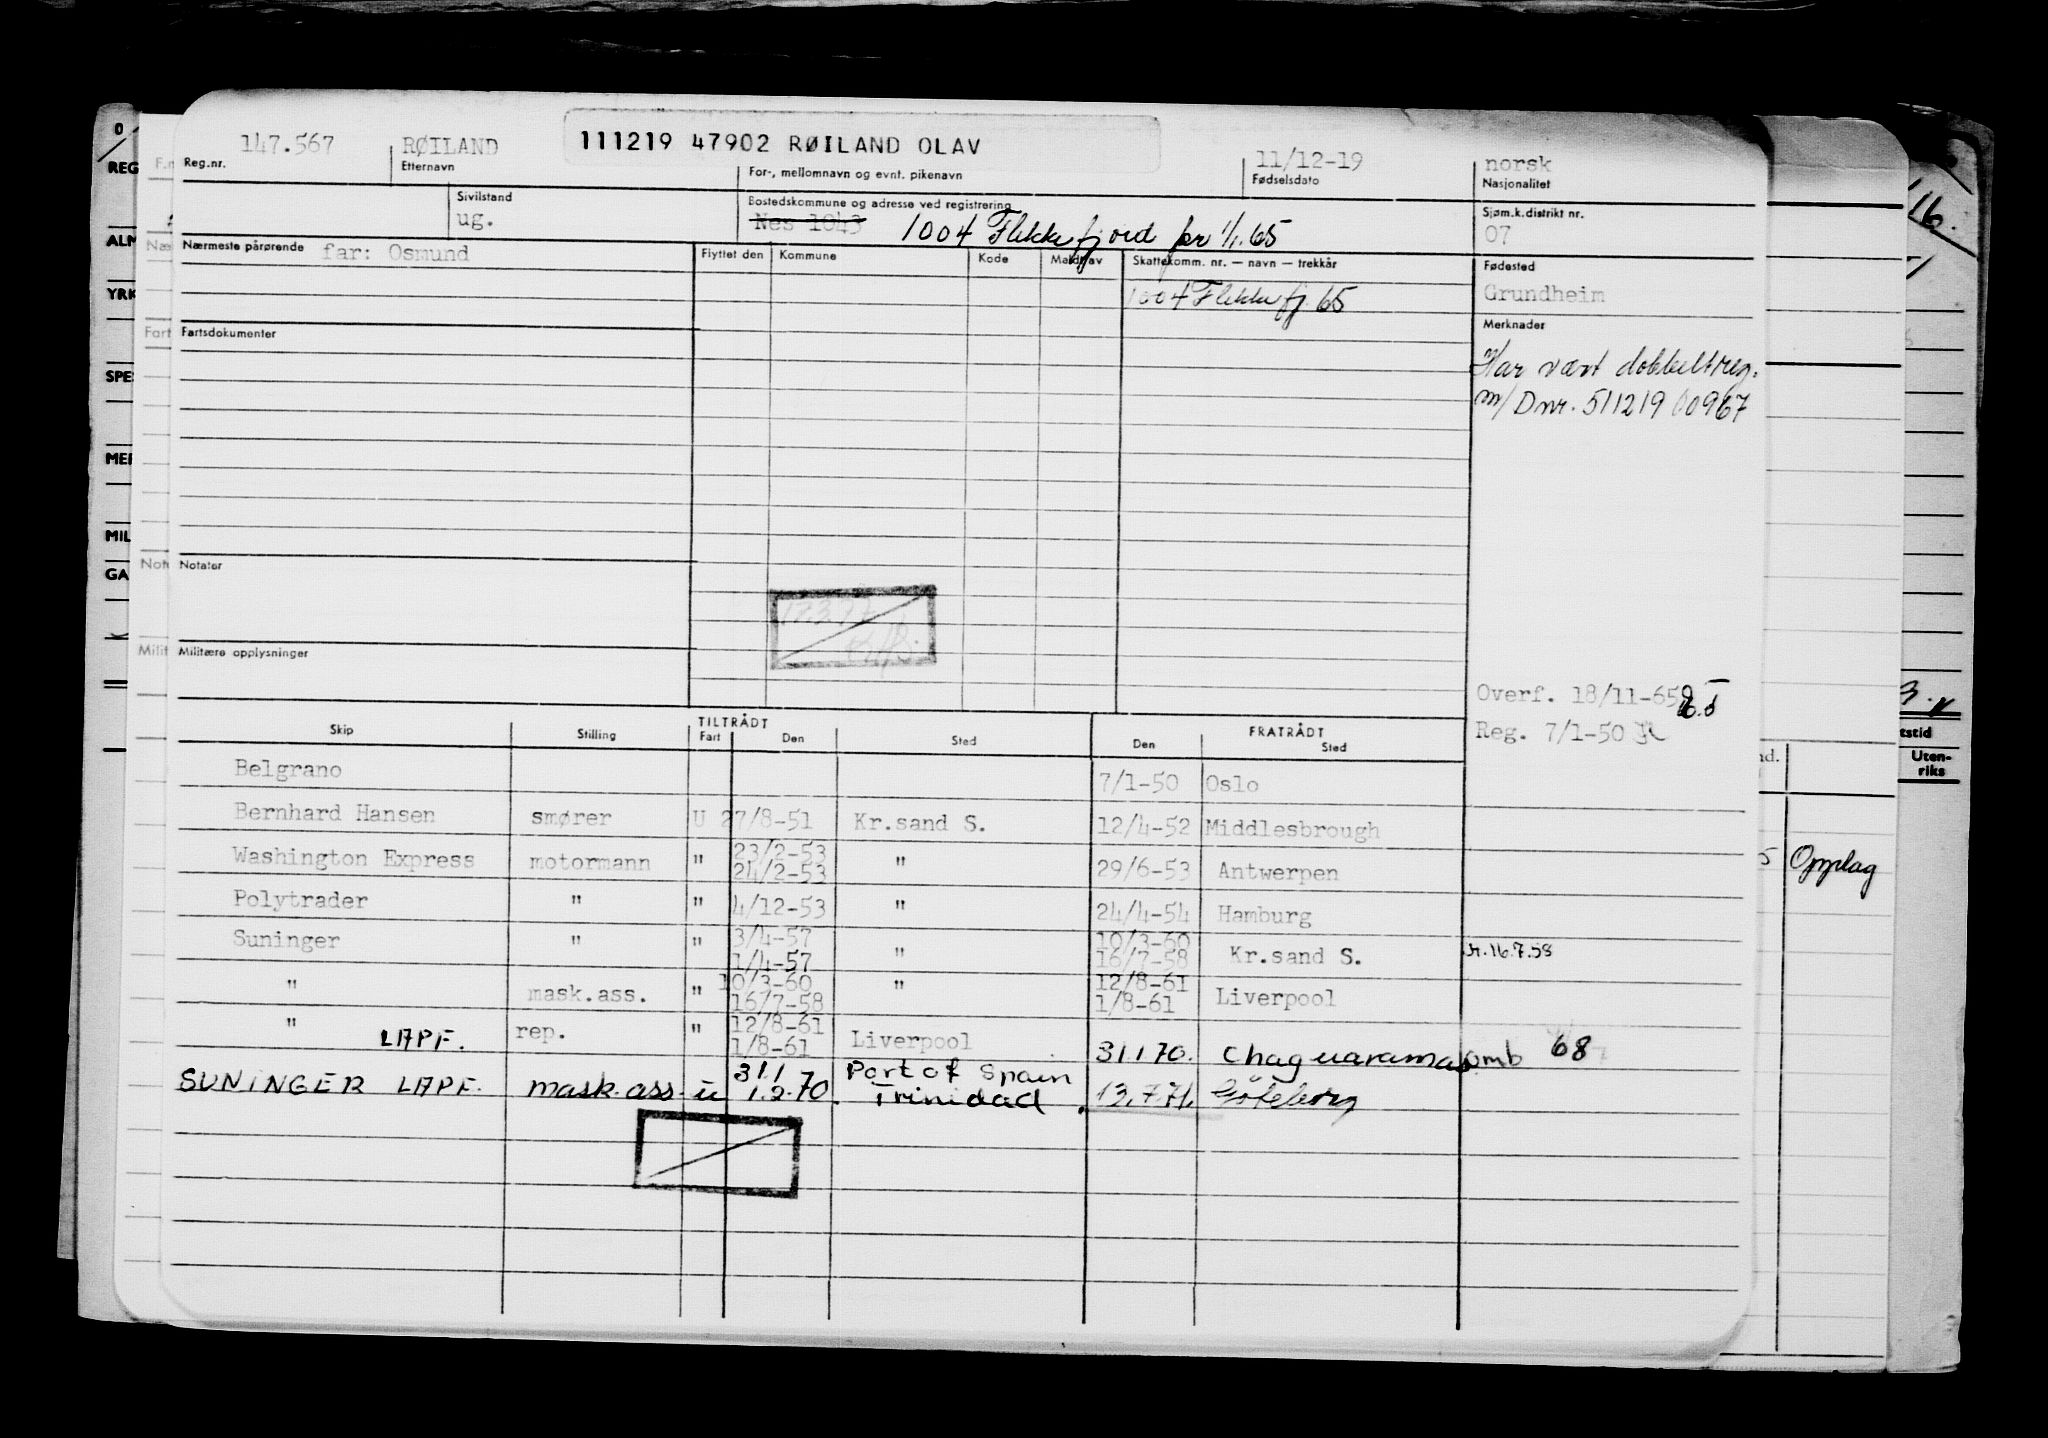 147.567 RØILAND 111219 47902 RØILAND OLAV 11/12-19 norsk
Reg.nr. Etternavn For-, mellomnavn og evnt. pikenavn Fødselsdato Nasjonalitet
Sivilstand Bostedskommune og adresse ved registrering Sjøm.k.distrikt nr.
ug. Nes 1043 1004 Flekkefjord per 1/1.65 07
Nærmeste pårørende far: Osmund Flyttet den Kommune Kode Meldt av Skattekomm. nr. — navn — trekkår Fødested
1004 Flekkefj. 65 Grundheim
Fartsdokumenter Merknader
Har vært dobbeltreg.
m/ Dnr. 511219 00967
Notater
Militære opplysninger
Overf. 18/11-65
Reg. 7/1-50
TILTRÅDT FRATRÅDT
Skip Stilling Fart Den Sted Den Sted
Belgrano 7/1-50 Oslo
Bernhard Hansen smører U 27/8-51 Kr.sand S. 12/4-52 Middlesbrough
Washington Express motormann " 23/2-53 24/2-53 " 29/6-53 Antwerpen
Polytrader " " 4/12-53 " 24/4-54 Hamburg
Suninger " " 3/4-57 1/4-57 " 10/3-60 16/7-58 Kr.sand S. 16.7.58
" mask.ass. " 10/3-60 16/7-58 " 12/8-61 1/8-61 Liverpool
" LAPF. rep. " 12/8-61 1/8-61 Liverpool 31.1 70. Chaguaramas omb 68
SUNINGER LAPF. mask.ass. u 31.1 1.2.70. Port of Spain Trinidad 13.7.71. Göteborg
0
REG
ALM
YRK
SPE
MER
MIL
GA
F.n
Næ
Fart
Note
Milit
16.
tstid
Uten-
riks
nd.
Opplag